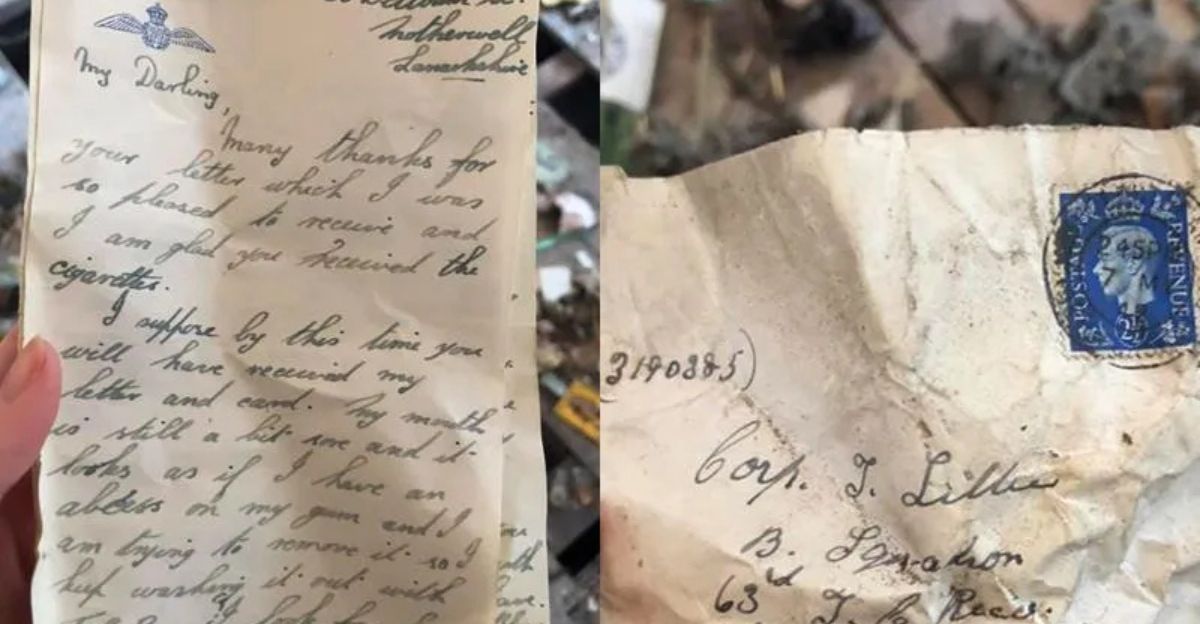 Motherwell
Lanarkshire
My Darling,
Many thanks for
your letter which I was
so pleased to receive and
I am glad you received the
cigarettes.
I suppose by this time you
will have received my
letter and card. My mouth
is still a bit sore and it
looks as if I have an
abcess on my gum and I
am trying to remove it so I
keep washing it out with
POSTAGE
REVENUE
24 SP
2½
3190885)
Corp. J. Lillie
B. Squadron
63rd